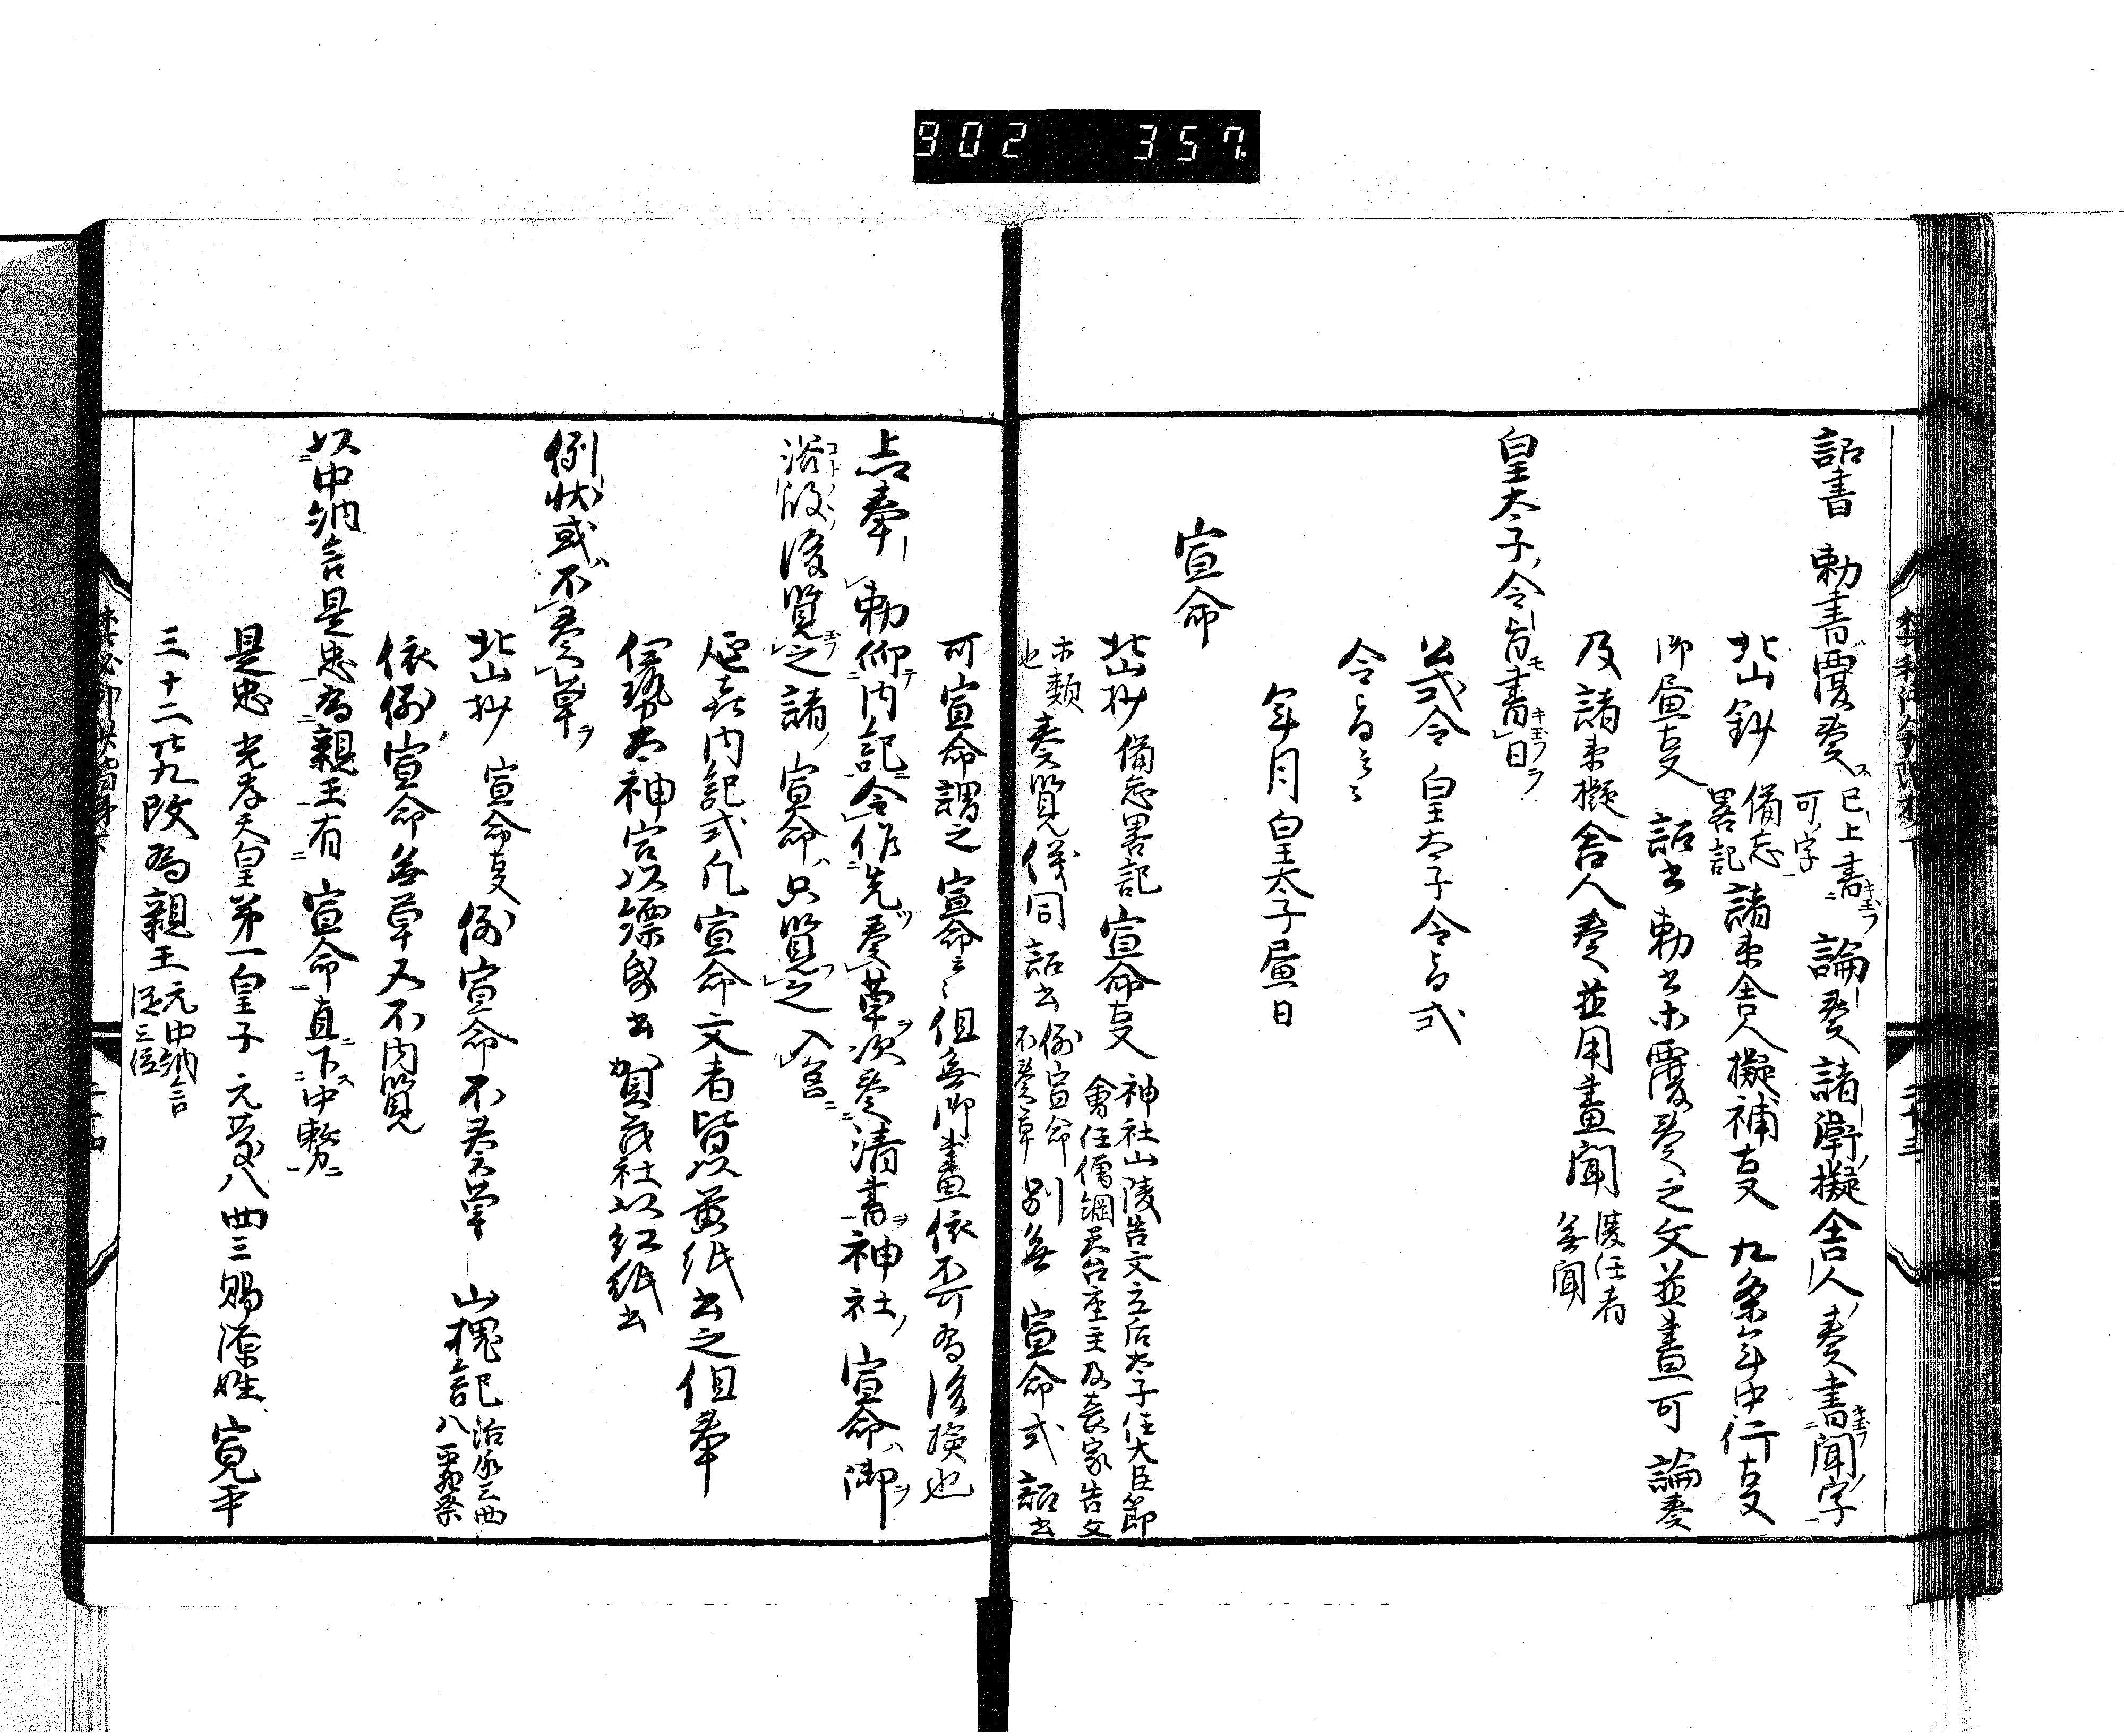 902 357
詔書 勅書覆奏ス已上書キ玉フ可ノ字 論奏諸衛擬舎人ノ奏書キ玉フ聞ノ字
北山鈔 備忘畧記 諸束舎人擬補叓 九条年中行叓
御畫叓 詔書勅書ホ覆奏之文並畫可 論奏
及諸束擬舎人奏並用畫聞 復任者無聞
皇太子ノ令旨モ書キ玉フ日ヲ
公式令 皇太子令旨式
令旨云々
年月皇太子畫日
宣命
北山抄 備忘畧記 宣命叓 神社山陵告文立后太子任大臣節會任僧綱天台座主及喪家告文
ホ類也 奏覧儀同詔書 例宣命不奏草 別無 宣命式 詔書
可宣命謂之宣命云々 但無御畫依不可為後撿也
上卿奉勅仰テ内記ニ令作先ツ奏草ヲ次奏清書ヲ神社ノ宣命ハ御
浴殿ノ後覧玉フ之諸ノ宣命ハ只覧之入筥ニ
延喜内記式凡宣命文者皆以黄紙書之但奉
伊勢太神宮以縹紙書賀茂社以紅紙書
例状或ハ不奏草ヲ
北山抄 宣命叓例宣命不奏草 山槐記 治承三四八 平野祭
依例宣命無草又不内覧
以中納言是忠為親王有宣命直ニ下ス中務ニ
是忠 光孝天皇第一皇子 元慶八四三賜源姓 寛平
三十二廿九改為親王 元中納言従三位